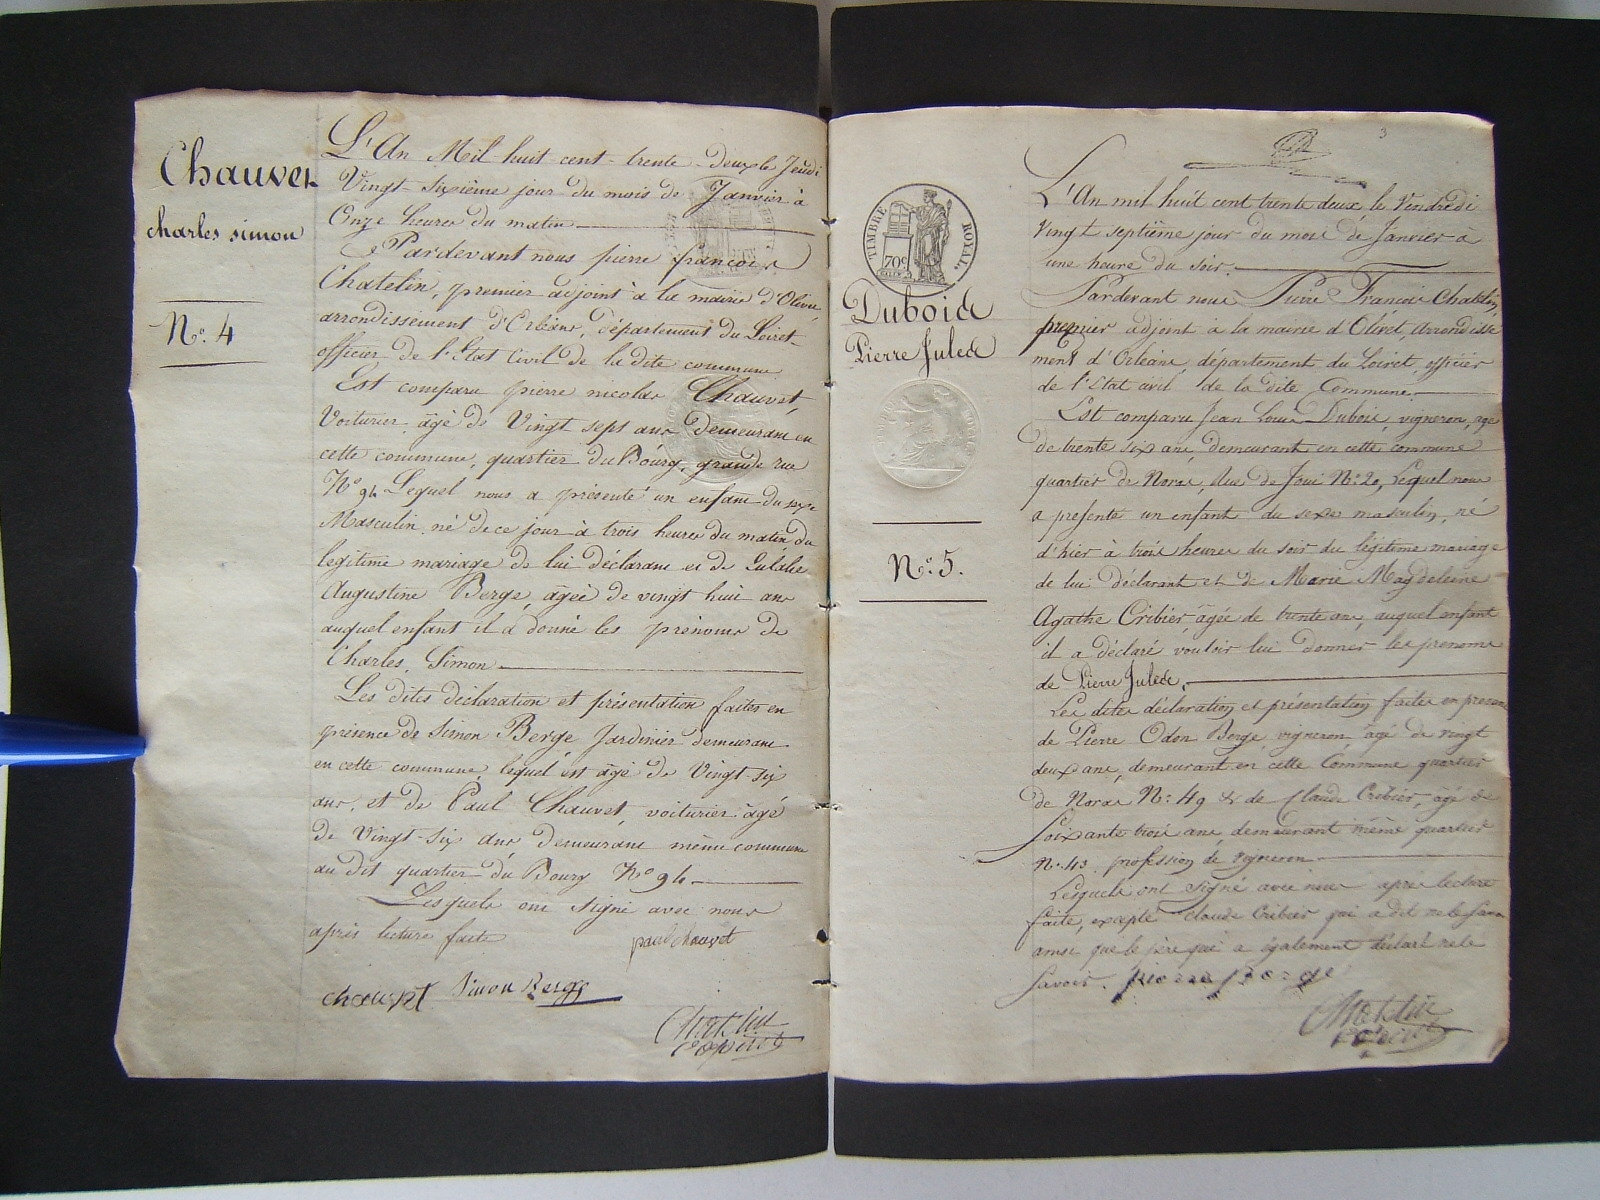 Chauvet
charles simon
N.º 4
L'An Mil huit cent trente deux le Jeudi
Vingt Sixième jour du mois de Janvier à
Onze heures du matin
Pardevant nous pierre françois
Chatelin, premier adjoint à la mairie d'Olivet,
arrondissement d'Orléans, département du Loiret
officier de l'Etat Civil de la dite commune
Est comparu pierre nicolas Chauvet,
Voiturier, âgé de Vingt sept ans demeurant en
cette commune, quartier du Bourg, grande rue
Nº 94 Lequel nous a présenté un enfant du sexe
Masculin né de ce jour à trois heures du matin du
legitime mariage de lui déclarant et de Eulalie
Augustine Berge, âgée de vingt huit ans
auquel enfant il a donné les prénoms de
Charles, Simon
Les dites déclaration et présentation faites en
présence de Simon Berge Jardinier demeurant
en cette commune, lequel est âgé de Vingt-six
ans, et de Paul Chauvet, voiturier âgé
de Vingt-six ans demeurant même commune
au dit quartier du Bourg Nº 94
Lesquels ont signé avec nous
après lecture faite
paul chauvet
chauvet Simon Berge
Chatelin
3
TIMBRE ROYAL
70c
Dubois
Pierre Jules
N.º 5.
L'An mil huit cent trente deux le Vendredi
Vingt septième jour du mois de Janvier à
une heure du soir.
Pardevant nous Pierre François Chatelin,
premier adjoint à la mairie d'Olivet, arrondisse
ment d'Orléans, département du Loiret, officier
de l'Etat civil de la dite Commune.
Est comparu Jean Louis Dubois, vigneron, age
de trente six ans, demeurant en cette commune
quartier de Noras, Rue de Joui Nº: 20, Lequel nous
a présenté un enfant du sexe masculin, né
d'hier à trois heures du soir du légitime mariage
de lui déclarant et de Marie Magdeleine
Agathe Cribier âgée de trente ans, auquel enfant
il a déclaré vouloir lui donner les prenoms
de Pierre Jules.
Les dites déclaration et présentation faites en presence
de Pierre Odon Berge vigneron âgé de vingt
deux ans, demeurant en cette Commune quartier
de Noras Nº: 49 & de Claude Cribier, âgé de
Soixante trois ans, demeurant même quartier
Nº. 43 profession de vigneron
Lesquels ont signé avec nous après lecture
faite, excepté Claude Cribier qui a dit ne le savoir
ainsi que le père qui a également déclaré ne le
savoir. pierre Berge
Chatelin